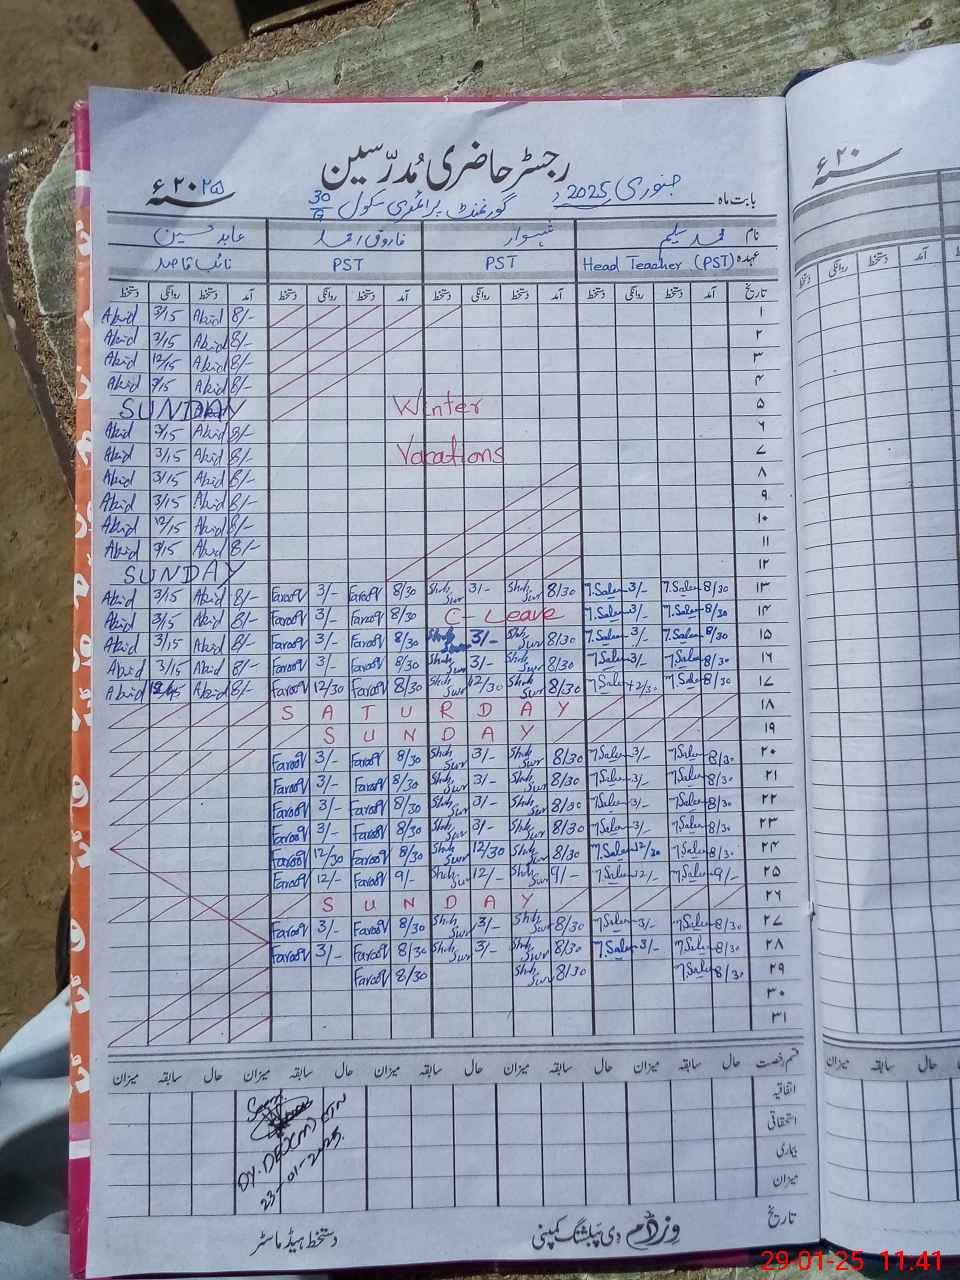 رجسٹر حاضری مُدرّسین
سنہ ۲۰۲۵ء
بابت ماہ جنوری 2025ء گورنمنٹ پرائمری سکول 30/9
نام محمد سلیم شہسوار فاروق احمد عابد حسین
عہدہ Head Teacher (PST) PST PST نائب قاصد
تاریخ آمد دستخط روانگی دستخط آمد دستخط روانگی دستخط آمد دستخط روانگی دستخط آمد دستخط روانگی دستخط
۱ Abid 3/15 Abid 8/-
۲ Abid 3/15 Abid 8/-
۳ Abid 12/15 Abid 8/-
۴ Abid 3/15 Abid 8/-
۵ SUNDAY Winter
۶ Abid 3/15 Abid 8/-
۷ Abid 3/15 Abid 8/- Vacations
۸ Abid 3/15 Abid 8/-
۹ Abid 3/15 Abid 8/-
۱۰ Abid 12/15 Abid 8/-
۱۱ Abid 3/15 Abid 8/-
۱۲ SUNDAY
۱۳ Abid 3/15 Abid 8/- Farooq 3/- Farooq 8/30 Shah Swr 3/- Shah Swr 8/30 M.Saleem 3/- M.Saleem 8/30
۱۴ Abid 3/15 Abid 8/- Farooq 3/- Farooq 8/30 C-Leave M.Saleem 3/- M.Saleem 8/30
۱۵ Abid 3/15 Abid 8/- Farooq 3/- Farooq 8/30 Shah Swr 3/- Shah Swr 8/30 M.Saleem 3/- M.Saleem 8/30
۱۶ Abid 3/15 Abid 8/- Farooq 3/- Farooq 8/30 Shah Swr 3/- Shah Swr 8/30 M.Saleem 3/- M.Saleem 8/30
۱۷ Abid 12/15 Abid 8/- Farooq 12/30 Farooq 8/30 Shah Swr 12/30 Shah Swr 8/30 M.Saleem 12/30 M.Saleem 8/30
۱۸ SATURDAY
۱۹ SUNDAY
۲۰ Farooq 3/- Farooq 8/30 Shah Swr 3/- Shah Swr 8/30 M.Saleem 3/- M.Saleem 8/30
۲۱ Farooq 3/- Farooq 8/30 Shah Swr 3/- Shah Swr 8/30 M.Saleem 3/- M.Saleem 8/30
۲۲ Farooq 3/- Farooq 8/30 Shah Swr 3/- Shah Swr 8/30 M.Saleem 3/- M.Saleem 8/30
۲۳ Farooq 3/- Farooq 8/30 Shah Swr 3/- Shah Swr 8/30 M.Saleem 3/- M.Saleem 8/30
۲۴ Farooq 12/30 Farooq 8/30 Shah Swr 12/30 Shah Swr 8/30 M.Saleem 12/30 M.Saleem 8/30
۲۵ Farooq 12/- Farooq 9/- Shah Swr 12/- Shah Swr 9/- M.Saleem 12/- M.Saleem 9/-
۲۶ SUNDAY
۲۷ Farooq 3/- Farooq 8/30 Shah Swr 3/- Shah Swr 8/30 M.Saleem 3/- M.Saleem 8/30
۲۸ Farooq 3/- Farooq 8/30 Shah Swr 3/- Shah Swr 8/30 M.Saleem 3/- M.Saleem 8/30
۲۹ Farooq 8/30 Shah Swr 8/30 M.Saleem 8/30
۳۰
۳۱
قسم رخصت حال سابقہ میزان حال سابقہ میزان حال سابقہ میزان حال سابقہ میزان
اتفاقیہ
استحقاقی
بیماری
میزان
تاریخ
DY. DEO(M)
23-01-2025
دستخط ہیڈ ماسٹر
وزڈم دی پبلشنگ کمپنی
سنہ ۲۰ء
دستخط روانگی دستخط آمد
میزان سابقہ حال
29-01-25 11:41